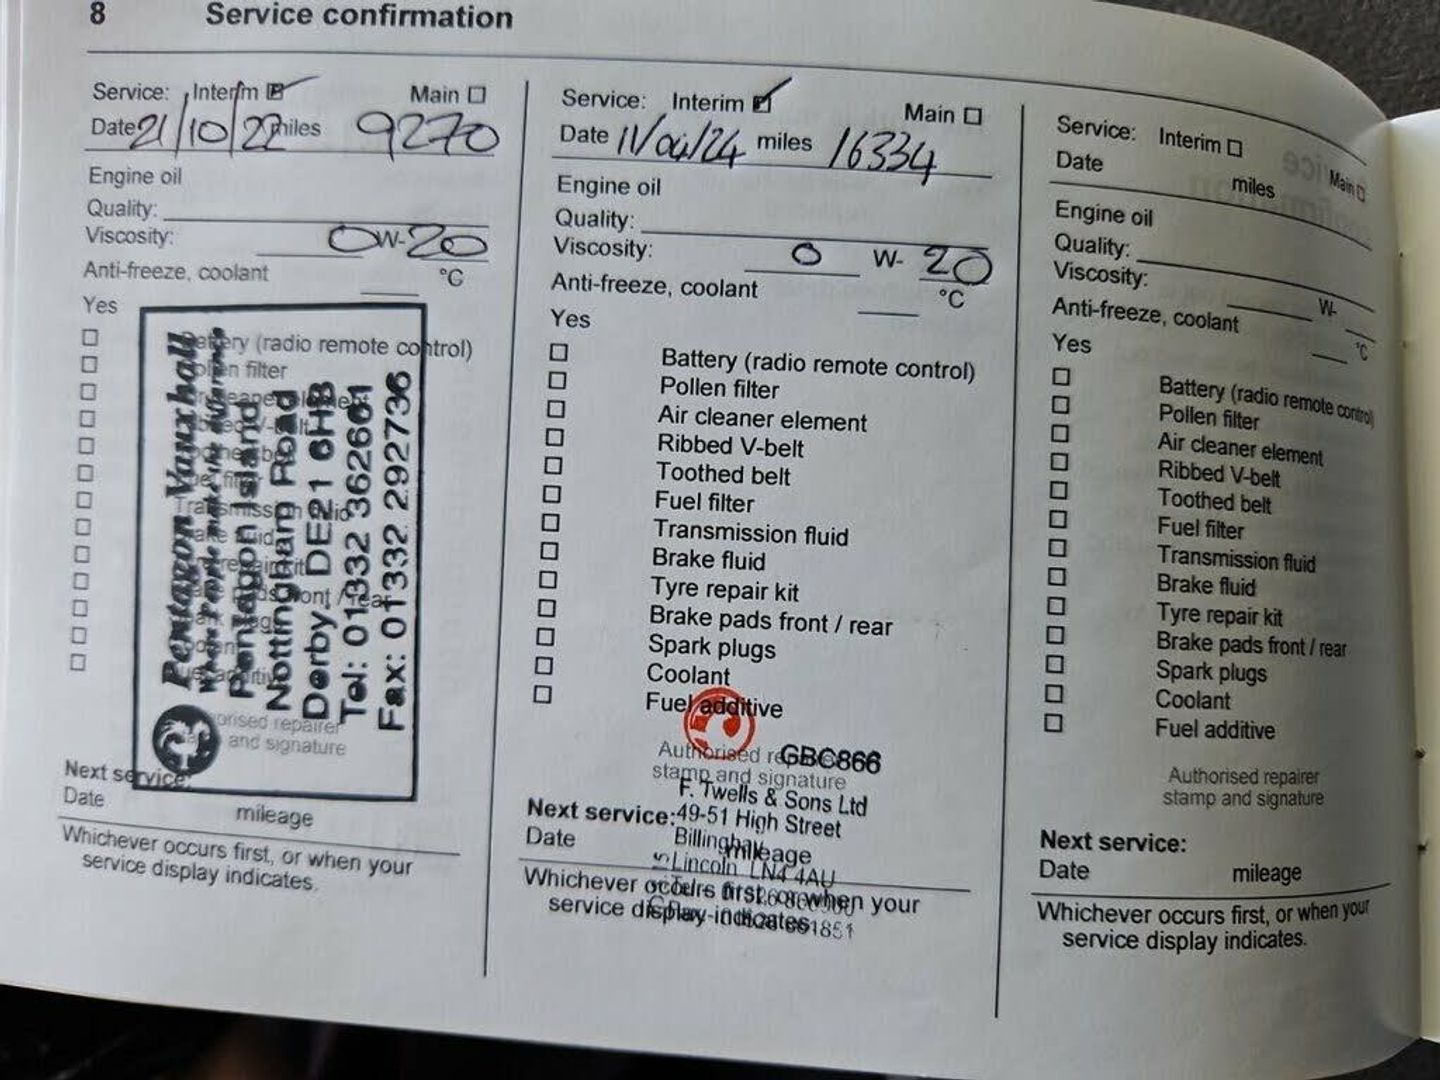 8 Service confirmation
Service: Interim Main
Date 21/10/22 miles 9270
Engine oil
Quality:
Viscosity: 0 W- 20
Anti-freeze, coolant °C
Yes
Battery (radio remote control)
Pollen filter
Pentagon Vauxhall
Where People make the difference
Pentagon Island
Nottingham Road
Derby, DE21 6HB
Tel: 01332 362661
Fax: 01332 292736
Transmission fluid
and signature
Next service:
Date mileage
Whichever occurs first, or when your
service display indicates.
Service: Interim Main
Date 11/04/24 miles 16334
Engine oil
Quality:
Viscosity: 0 W- 20
Anti-freeze, coolant °C
Yes
Battery (radio remote control)
Pollen filter
Air cleaner element
Ribbed V-belt
Toothed belt
Fuel filter
Transmission fluid
Brake fluid
Tyre repair kit
Brake pads front / rear
Spark plugs
Coolant
Fuel additive
Authorised
GBC866
stamp and signature
F. Twells & Sons Ltd
Next service: 49-51 High Street
Billinghay
Date mileage
Lincoln LN4 4AU
Whichever occurs first, or when your
service display indicates.
Service: Interim Main
Date miles
Engine oil
Quality:
Viscosity: W-
Anti-freeze, coolant °C
Yes
Battery (radio remote control)
Pollen filter
Air cleaner element
Ribbed V-belt
Toothed belt
Fuel filter
Transmission fluid
Brake fluid
Tyre repair kit
Brake pads front / rear
Spark plugs
Coolant
Fuel additive
Authorised repairer
stamp and signature
Next service:
Date mileage
Whichever occurs first, or when your
service display indicates.